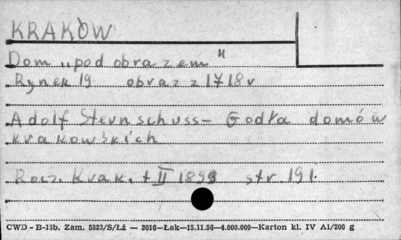 KRAKÓW
Dom „pod obrazem"
Rynek 19 obraz z 1718 r
Adolf Sternschuss - Godła domów
krakowskich
Rocz. Krak. t II 1899 str 191.
CWD - B-15b. Zam. 5823/S/Łź — 3016—Łak—15.11.56—4.000.000—Karton kl. IV A1/200 g